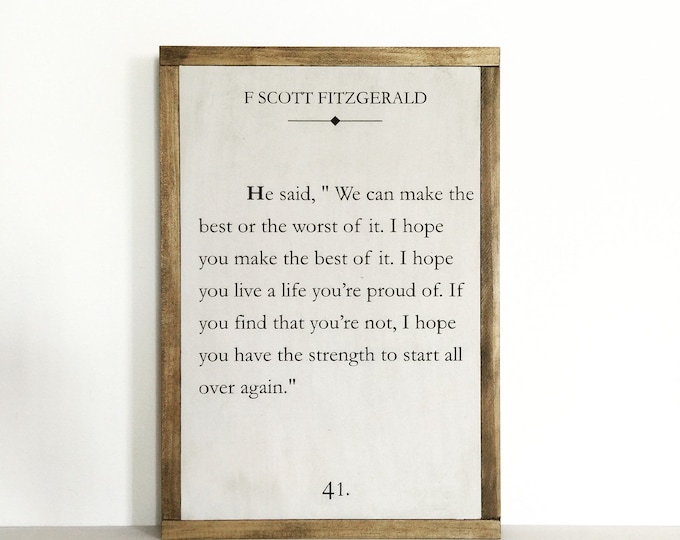 F SCOTT FITZGERALD
He said, " We can make the
best or the worst of it. I hope
you make the best of it. I hope
you live a life you're proud of. If
you find that you're not, I hope
you have the strength to start all
over again."
41.